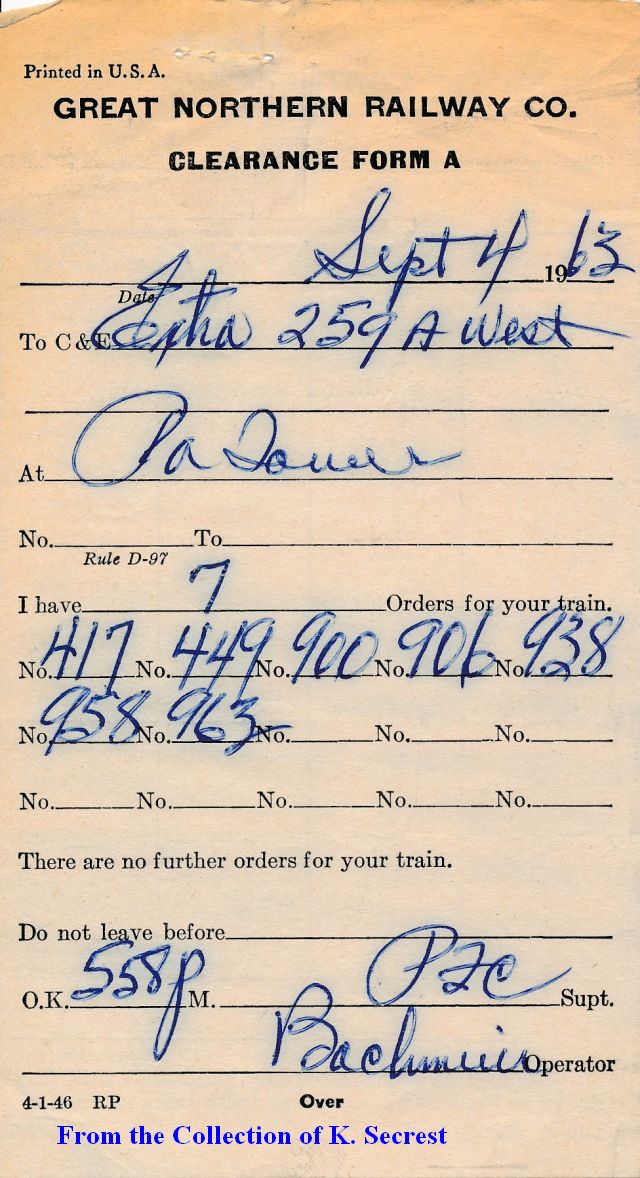 Printed in U.S.A.
GREAT NORTHERN RAILWAY CO.
CLEARANCE FORM A
Sept 4 1963
Date
To C & E Extra 259 A West
At Pa Tower
No. To
Rule D-97
I have 7 Orders for your train.
No. 417 No. 449 No. 900 No. 906 No. 938
No. 958 No. 963 No. No. No.
No. No. No. No. No.
There are no further orders for your train.
Do not leave before
O.K. 558p M. Supt.
Operator
4-1-46 RP Over
From the Collection of K. Secrest